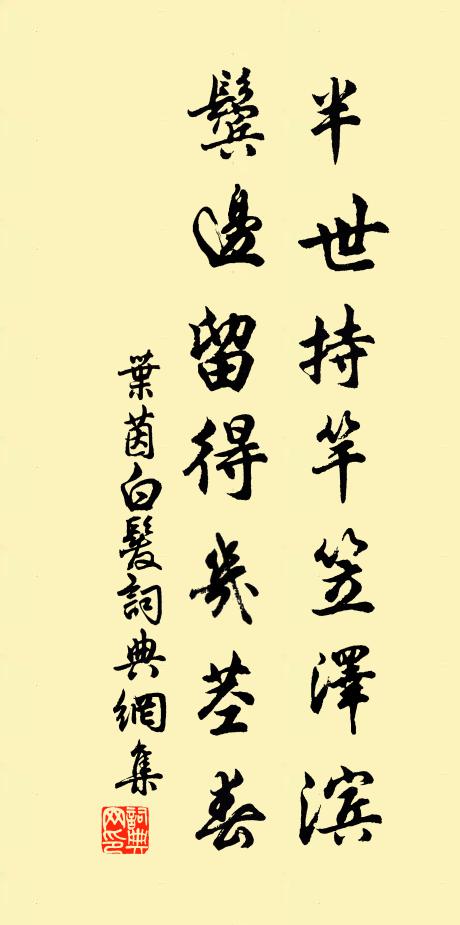 半世持竿笠澤滨
鬓邊留得幾茎春
葉茵白髮詞典網集
詞典网印